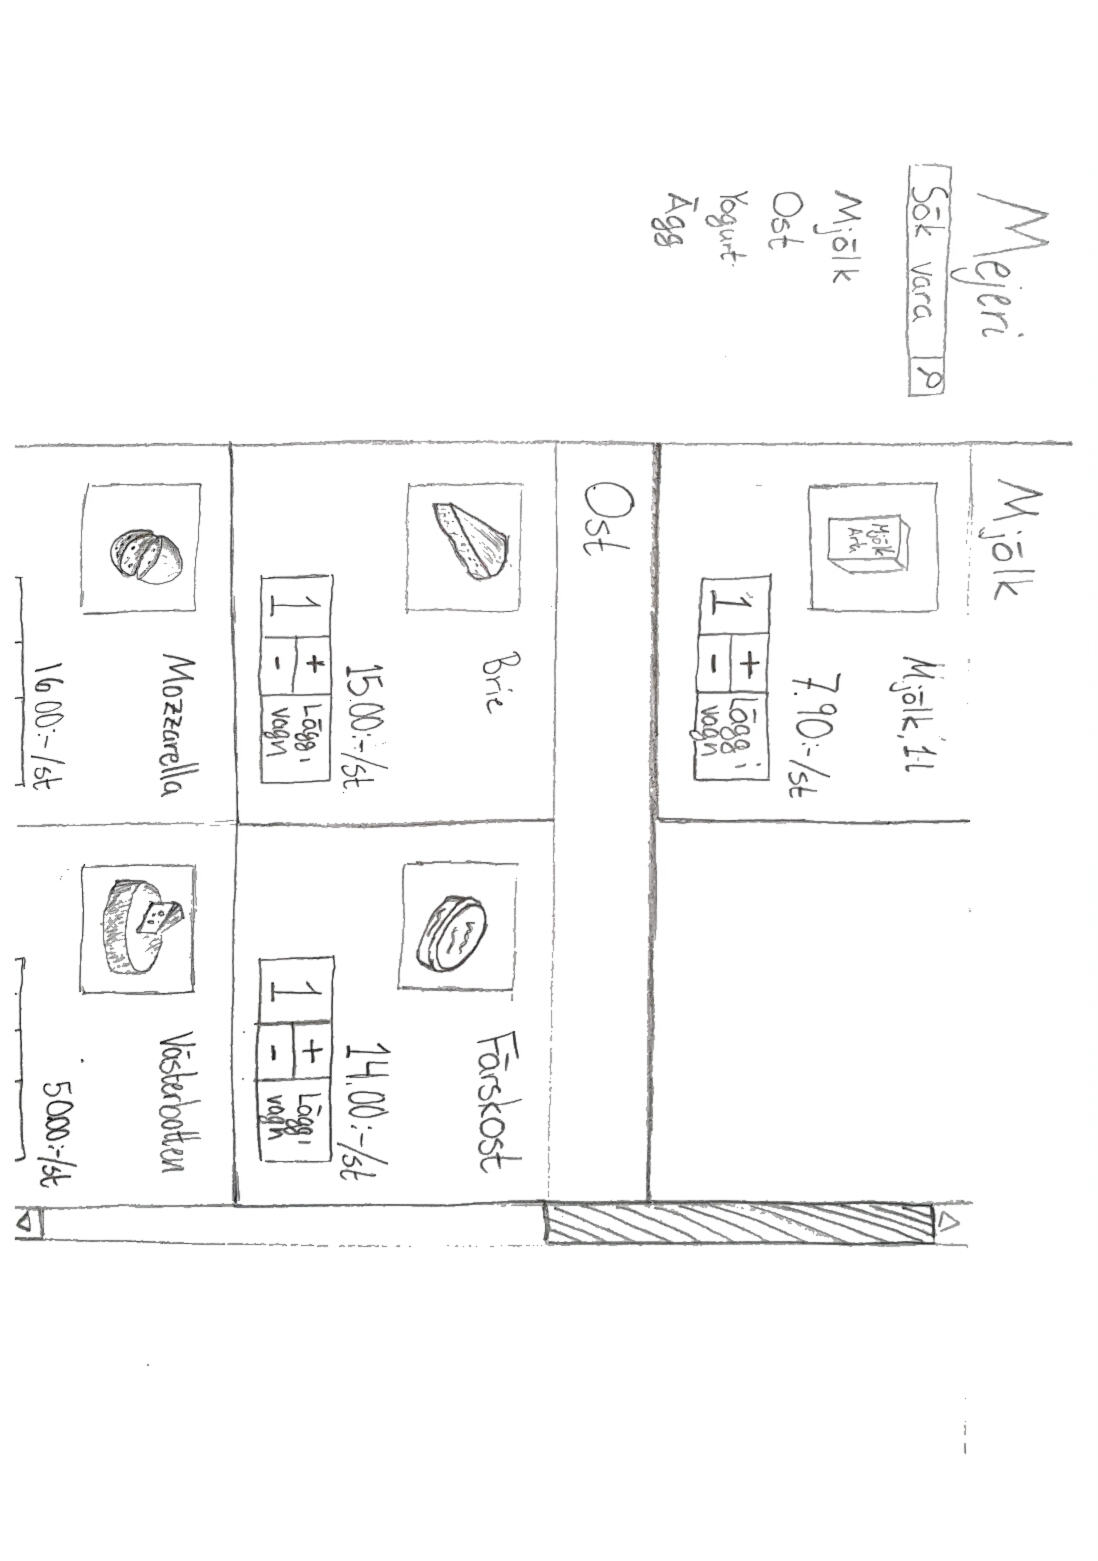 Mejeri
Sök vara
Mjölk
Ost
Yogurt
Ägg
Mjölk
Mjölk
Arla
Mjölk, 1l
7.90:-/st
1
+
-
Lägg i
vagn
Ost
Brie
15.00:-/st
1
+
-
Lägg i
vagn
Färskost
14.00:-/st
1
+
-
Lägg i
vagn
Mozzarella
16.00:-/st
Västerbotten
50.00:-/st